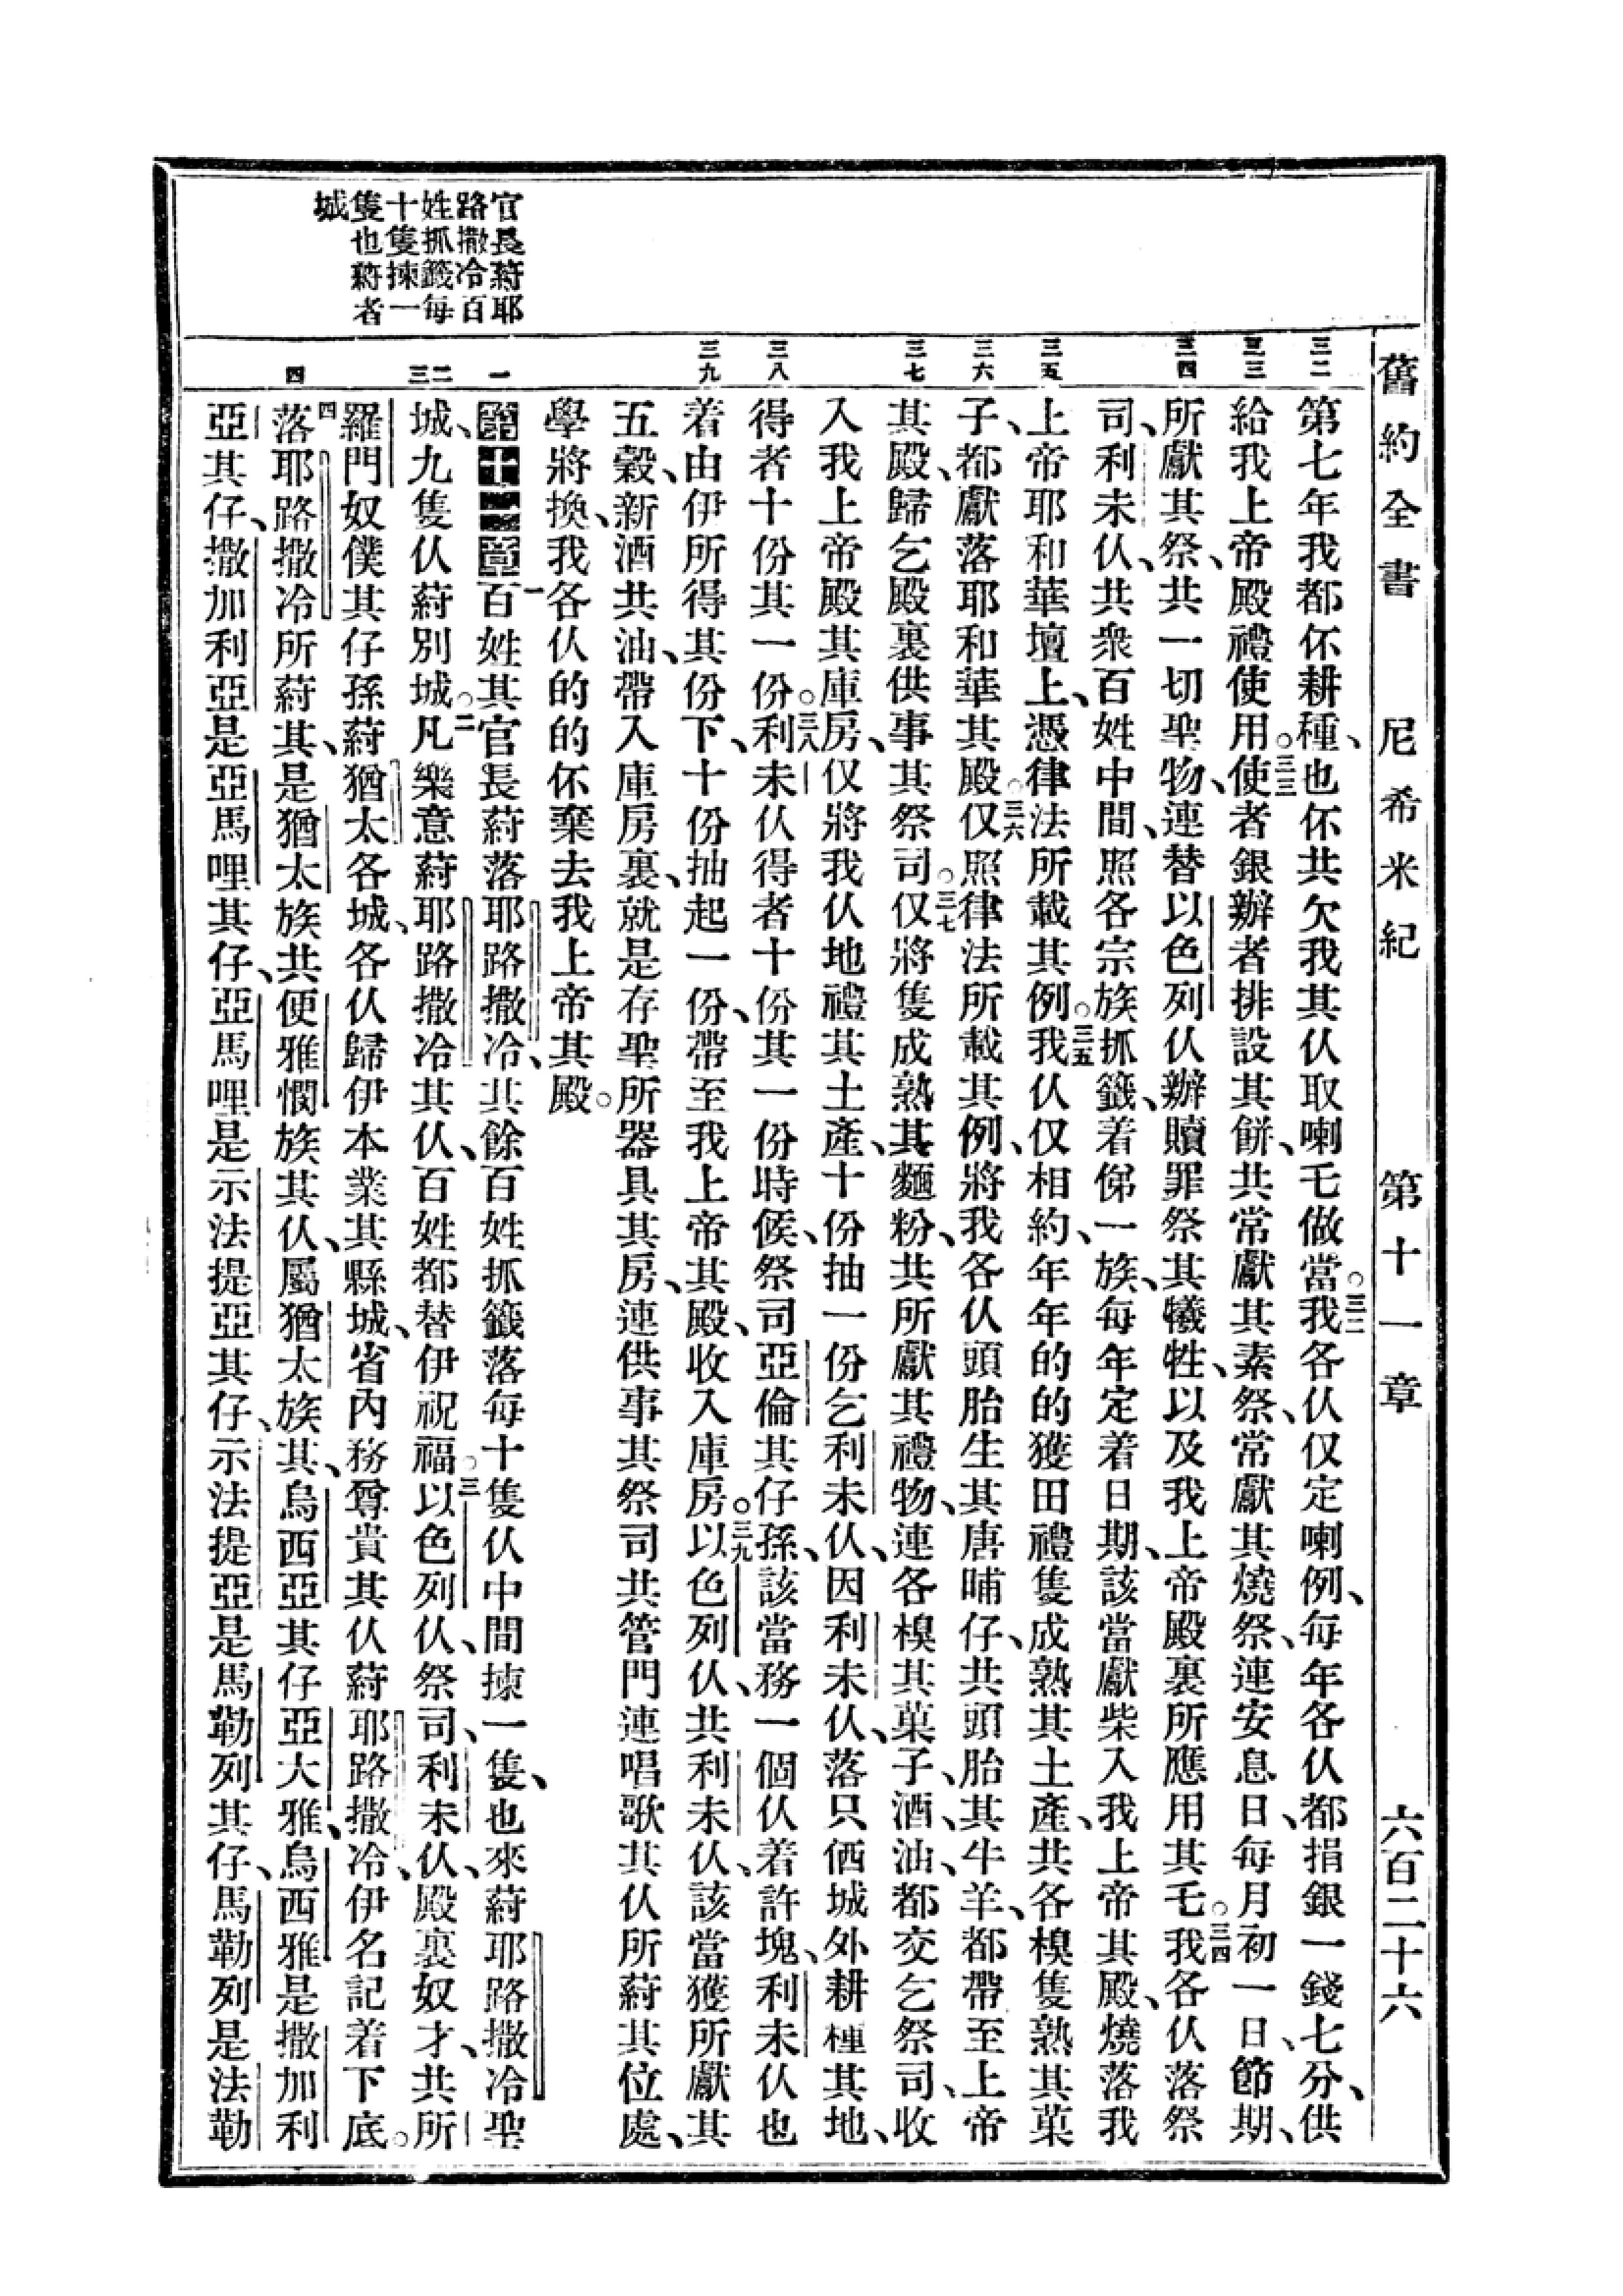 舊約全書 尼希米紀 第十一章 六百二十六
官長葤耶
路撒冷百
姓抓籤每
十隻揀一
隻也葤者
城
三二
三三
三四
三五
三六
三七
三八
三九
一
二
三
四
第七年我都伓耕種、也伓共欠我其仈取喇乇做當。三二我各仈仅定喇例、每年各仈都捐銀一錢七分、供
給我上帝殿禮使用。三三使者銀辦者排設其餅、共常獻其素祭、常獻其燒祭、連安息日、每月初一日、節期、
所獻其祭、共一切聖物、連替以色列仈辦贖罪祭其犧牲、以及我上帝殿裏所應用其乇。三四我各仈落祭
司、利未仈、共衆百姓中間、照各宗族抓籤、着俤一族、每年定着日期、該當獻柴入我上帝其殿、燒落我
上帝耶和華壇上、憑律法所載其例。三五我仈仅相約、年年的的獲田禮隻成熟其土產、共各模隻熟其菓
子、都獻落耶和華其殿。三六仅照律法所載其例、將我各仈頭胎生其唐晡仔、共頭胎其牛羊、都帶至上帝
其殿、歸乞殿裏供事其祭司。三七仅將隻成熟其麵粉、共所獻其禮物、連各模其菓子、酒、油、都交乞祭司、收
入我上帝殿其庫房、仅將我仈地禮其土產、十份抽一份乞利未仈、因利未仈、落只価城外耕種其地、
得者十份其一份。三八利未仈得者十份其一份時候、祭司亞倫其仔孫、該當務一個仈着許塊、利未仈也
着由伊所得其份下、十份抽起一份、帶至我上帝其殿、收入庫房。三九以色列仈、共利未仈、該當獲所獻其
五穀、新酒共油、帶入庫房裏、就是存聖所器具其房、連供事其祭司共管門連唱歌其仈所葤其位處、
學將換、我各仈的的伓棄去我上帝其殿。
第十一章 一百姓其官長葤落耶路撒冷、其餘百姓抓籤落每十隻仈中間揀一隻、也來葤耶路撒冷聖
城、九隻仈葤別城。二凡樂意葤耶路撒冷其仈、百姓都替伊祝福。三以色列仈、祭司、利未仈、殿裏奴才、共所
羅門奴僕其仔孫葤猶太各城、各仈歸伊本業其縣城、省內務尊貴其仈葤耶路撒冷、伊名記着下底。
四落耶路撒冷所葤其、是猶太族共便雅憫族其仈、屬猶太族其、烏西亞其仔亞大雅、烏西雅是撒加利
亞其仔、撒加利亞是亞馬哩其仔、亞馬哩是示法提亞其仔、示法提亞是馬勒列其仔、馬勒列是法勒